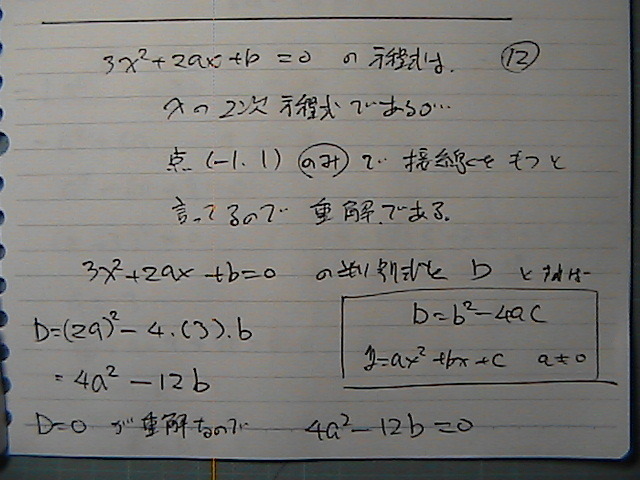 3x²+2ax+b=0 の方程式は. ⑫
xの2次方程式である0…
点(-1.1)のみで接線をもつと
言ってるので重解である。
3x²+2ax+b=0 の判別式を D とすれば
D=(2a)²-4・(3)・b
D=b²-4ac
=4a²-12b
y=ax²+bx+c a≠0
D=0 が重解なので 4a²-12b=0